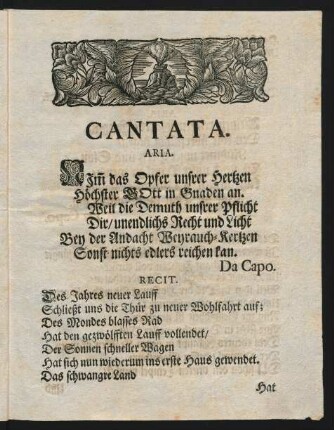 CANTATA.
ARIA.
NJm̃ das Opfer unsrer Hertzen
Höchster GOtt in Gnaden an.
Weil die Demuth unsrer Pflicht
Dir/ unendlichs Recht und Licht
Bey der Andacht Weyrauch-Kertzen
Sonst nichts edlers reichen kan.
Da Capo.
RECIT.
Des Jahres neuer Lauff
Schließt uns die Thür zu neuer Wohlfahrt auf;
Des Mondes blasses Rad
Hat den gezwölfften Lauff vollendet/
Der Sonnen schneller Wagen
Hat sich nun wiederum ins erste Haus gewendet.
Das schwangre Land
Hat